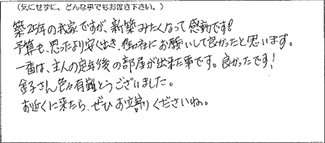 （気にせずに、どんな事でもお書き下さい。）
築25年の我家ですが、新築みたくなって感動です!
予算も、思ったより安く出き、御社にお願いして良かったと思います。
一番は、主人の定年後の部屋が出来た事です。良かったです!
金子さん色々有難とうございました。
お近くに来たら、ぜひお立寄りくださいね。